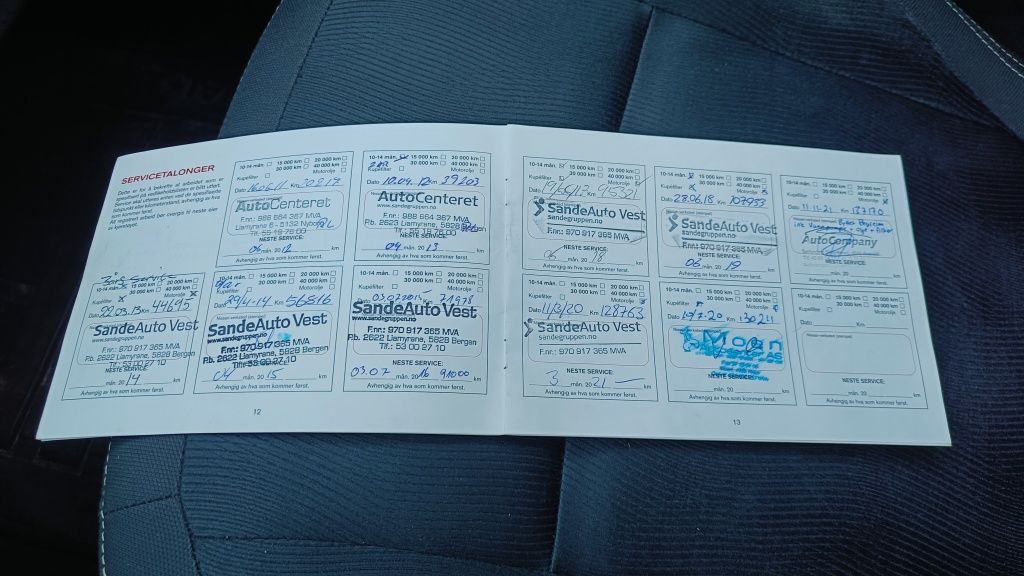 SERVICETALONGER
Dette er for å bekrefte at arbeidet som er
10-14 mån. 15 000 km 20 000 km
30 000 km 40 000 km
Kupefilter Motorolje
Dato Km 20217
AutoCenteret
F.nr.: 988 664 367 MVA
Liamyrane 6 - 5132 Nyborg
Tlf. 55 19 76 00
NESTE SERVICE:
06 mån. 20 12 km
Avhengig av hva som kommer først.
10-14 mån. 15 000 km 20 000 km
30 000 km 40 000 km
Motorolje
Dato 10.04.12 Km 39203
AutoCenteret
www.sandegruppen.no
F.nr.: 988 664 367 MVA
P.b. 2623 Liamyrane, 5828 Bergen
Tlf. 55 19 76 00
NESTE SERVICE:
04 mån. 20 13 km
Avhengig av hva som kommer først.
3års Service
10-14 mån. 15 000 km 20 000 km
30 000 km 40 000 km
Kupefilter Motorolje
Dato 22.03.13 Km 44645
SandeAuto Vest
www.sandegruppen.no
F.nr.: 970 917 365 MVA
P.b. 2622 Liamyrane, 5828 Bergen
Tlf.: 53 00 27 10
NESTE SERVICE:
mån. 20 14 km
Avhengig av hva som kommer først.
10-14 mån. 15 000 km 20 000 km
30 000 km 40 000 km
Kupefilter Motorolje
Dato 29/4-14 Km 56816
SandeAuto Vest
www.sandegruppen.no
F.nr.: 970 917 365 MVA
P.b. 2622 Liamyrane, 5828 Bergen
Tlf.: 53 00 27 10
NESTE SERVICE:
04 mån. 20 15 km
Avhengig av hva som kommer først.
10-14 mån. 15 000 km 20 000 km
30 000 km 40 000 km
Kupefilter Motorolje
03.07.2015 71978
SandeAuto Vest
www.sandegruppen.no
F.nr.: 970 917 365 MVA
P.b. 2622 Liamyrane, 5828 Bergen
Tlf.: 53 00 27 10
NESTE SERVICE:
03.07 mån. 20 16 91000 km
Avhengig av hva som kommer først.
12
10-14 mån. 15 000 km 20 000 km
30 000 km 40 000 km
Kupefilter Motorolje
Dato Km
SandeAuto Vest
sandegruppen.no
F.nr.: 970 917 365 MVA
NESTE SERVICE:
06 mån. 20 18 km
Avhengig av hva som kommer først.
10-14 mån. 15 000 km 20 000 km
30 000 km 40 000 km
Kupefilter Motorolje
Dato 28.06.18 Km 107953
SandeAuto Vest
sandegruppen.no
F.nr.: 970 917 365 MVA
NESTE SERVICE:
06 mån. 20 19 km
Avhengig av hva som kommer først.
10-14 mån. 15 000 km 20 000 km
30 000 km 40 000 km
Kupefilter Motorolje
Dato 11.11.21 Km
AutoCompany
NESTE SERVICE:
mån. 20 km
Avhengig av hva som kommer først.
10-14 mån. 15 000 km 20 000 km
30 000 km 40 000 km
Kupefilter Motorolje
Dato 11/3/20 Km 128763
SandeAuto Vest
sandegruppen.no
F.nr.: 970 917 365 MVA
NESTE SERVICE:
3 mån. 20 21 km
Avhengig av hva som kommer først.
10-14 mån. 15 000 km 20 000 km
30 000 km 40 000 km
Kupefilter Motorolje
Dato Km
NESTE SERVICE:
mån. 20 km
Avhengig av hva som kommer først.
10-14 mån. 15 000 km 20 000 km
30 000 km 40 000 km
Kupefilter Motorolje
Dato Km
NESTE SERVICE:
mån. 20 km
Avhengig av hva som kommer først.
13